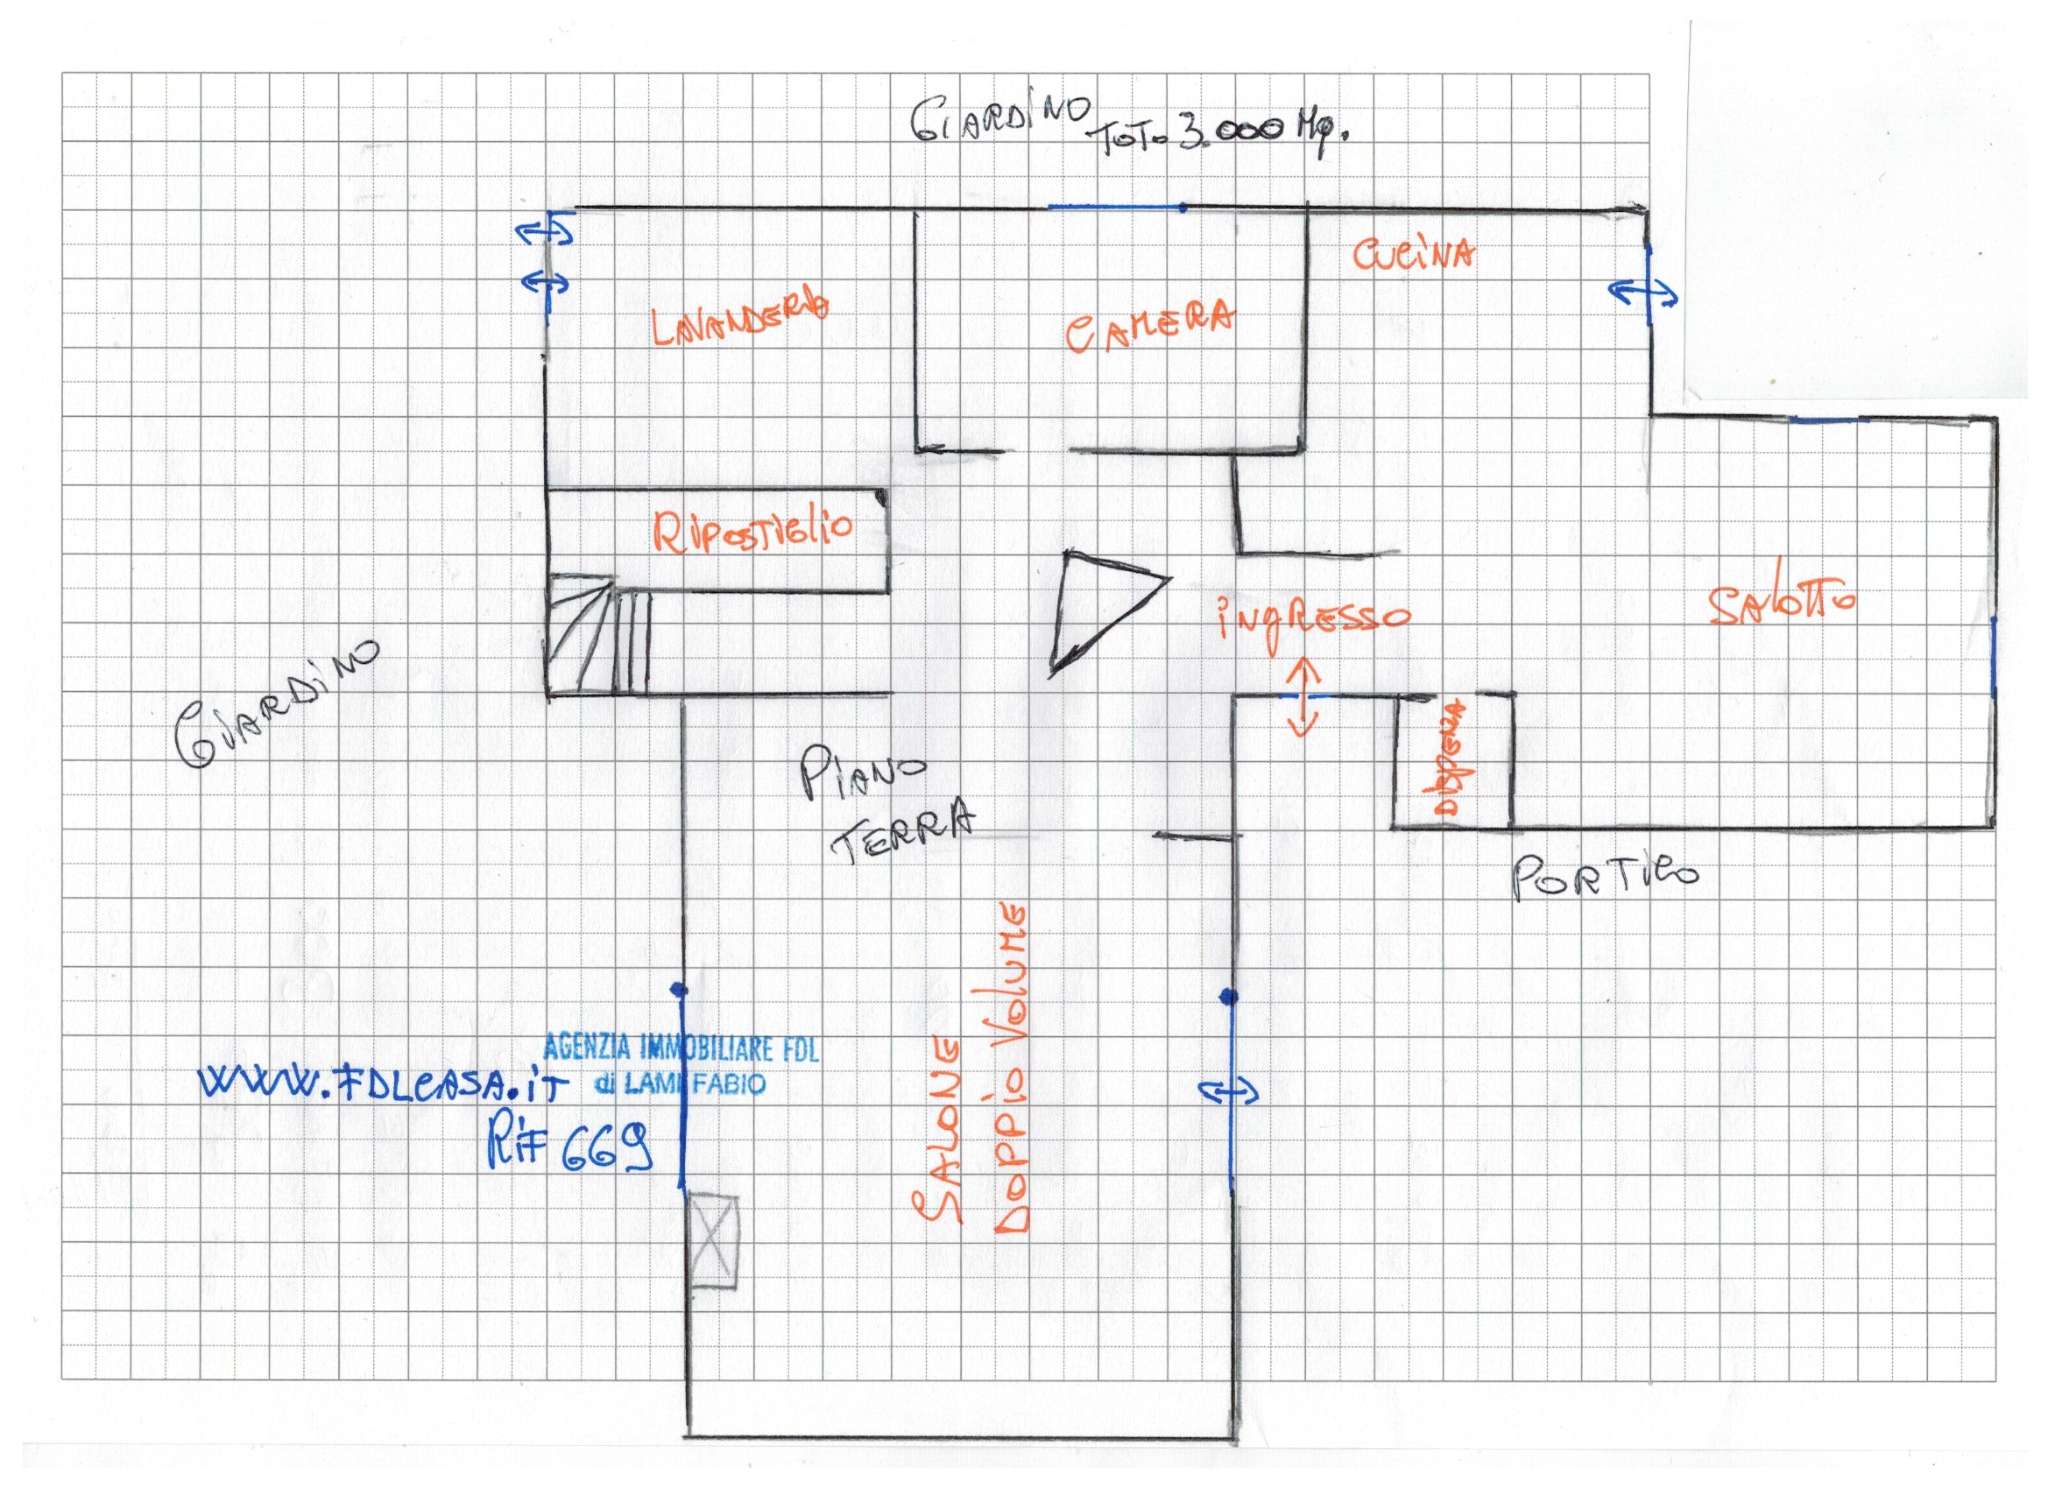 GIARDINO
TOT. 3.000 Mq.
CUCINA
LAVANDERIA
CAMERA
RIPOSTIGLIO
SALOTTO
INGRESSO
GIARDINO
DISPENZA
PIANO
TERRA
PORTICO
SALONE
DOPPIO VOLUME
AGENZIA IMMOBILIARE FDL
di LAMI FABIO
WWW.FDLCASA.IT
RIF 669